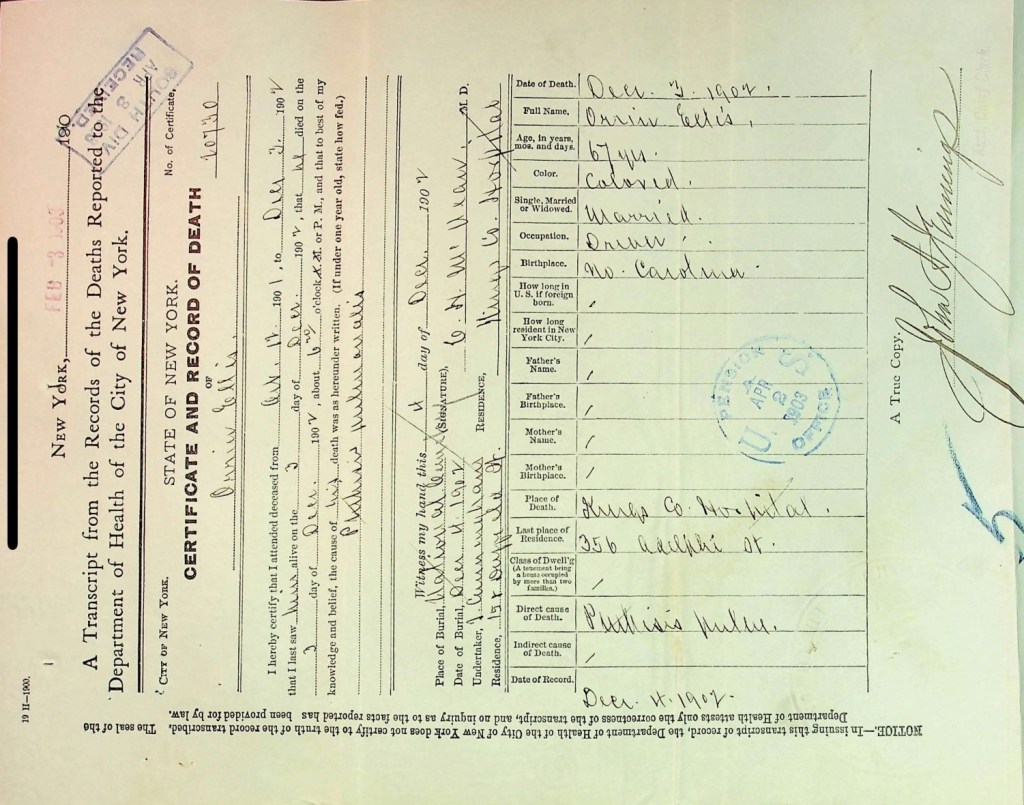 19 H—1900.
1
NEW YORK, FEB -3 1903 190
A Transcript from the Records of the Deaths Reported to the
Department of Health of the City of New York.
SOUTH DIV
APR 3 1903
RECEIVED
CITY OF NEW YORK.
STATE OF NEW YORK.
No. of Certificate,
CERTIFICATE AND RECORD OF DEATH
20730
OF
Orrin Ellis.
I hereby certify that I attended deceased from Oct. 17. 1901, to Decr 3. 1902
that I last saw him alive on the 3 day of Decr. 1902, that he died on the
3 day of Decr. 1902, about 6 o'clock A. M. or P. M., and that to best of my
knowledge and belief, the cause of his death was as hereunder written. (If under one year old, state how fed.)
Phthisis pulmonalis
Witness my hand this 4 day of Decr. 1902
Place of Burial, National Cem (SIGNATURE), M. D.
Date of Burial, Decr 4 1902
Undertaker, J. Cunningham RESIDENCE, Kings Co. Hospital
Residence, 158 Duffield St.
Date of Death. Decr. 3. 1902.
Full Name, Orrin Ellis.
Age, in years, mos. and days. 67 yrs.
Color. Colored.
Single, Married or Widowed. Married.
Occupation. Driver
Birthplace. No. Carolina.
How long in U. S. if foreign born. /
How long resident in New York City. /
Father's Name. /
Father's Birthplace. /
Mother's Name. /
Mother's Birthplace. /
Place of Death. Kings Co. Hospital.
Last place of Residence. 356 Adelphi St.
Class of Dwell'g (A tenement being a house occupied by more than two families.) /
Direct cause of Death. Phthisis pulm.
Indirect cause of Death. /
Date of Record. Decr. 4. 1902.
U. S. PENSION OFFICE
APR 2 1903
A True Copy.
5
NOTICE.—In issuing this transcript of record, the Department of Health of the City of New York does not certify to the truth of the record transcribed. The seal of the
Department of Health attests only the correctness of the transcript, and no inquiry as to the facts reported has been provided for by law.